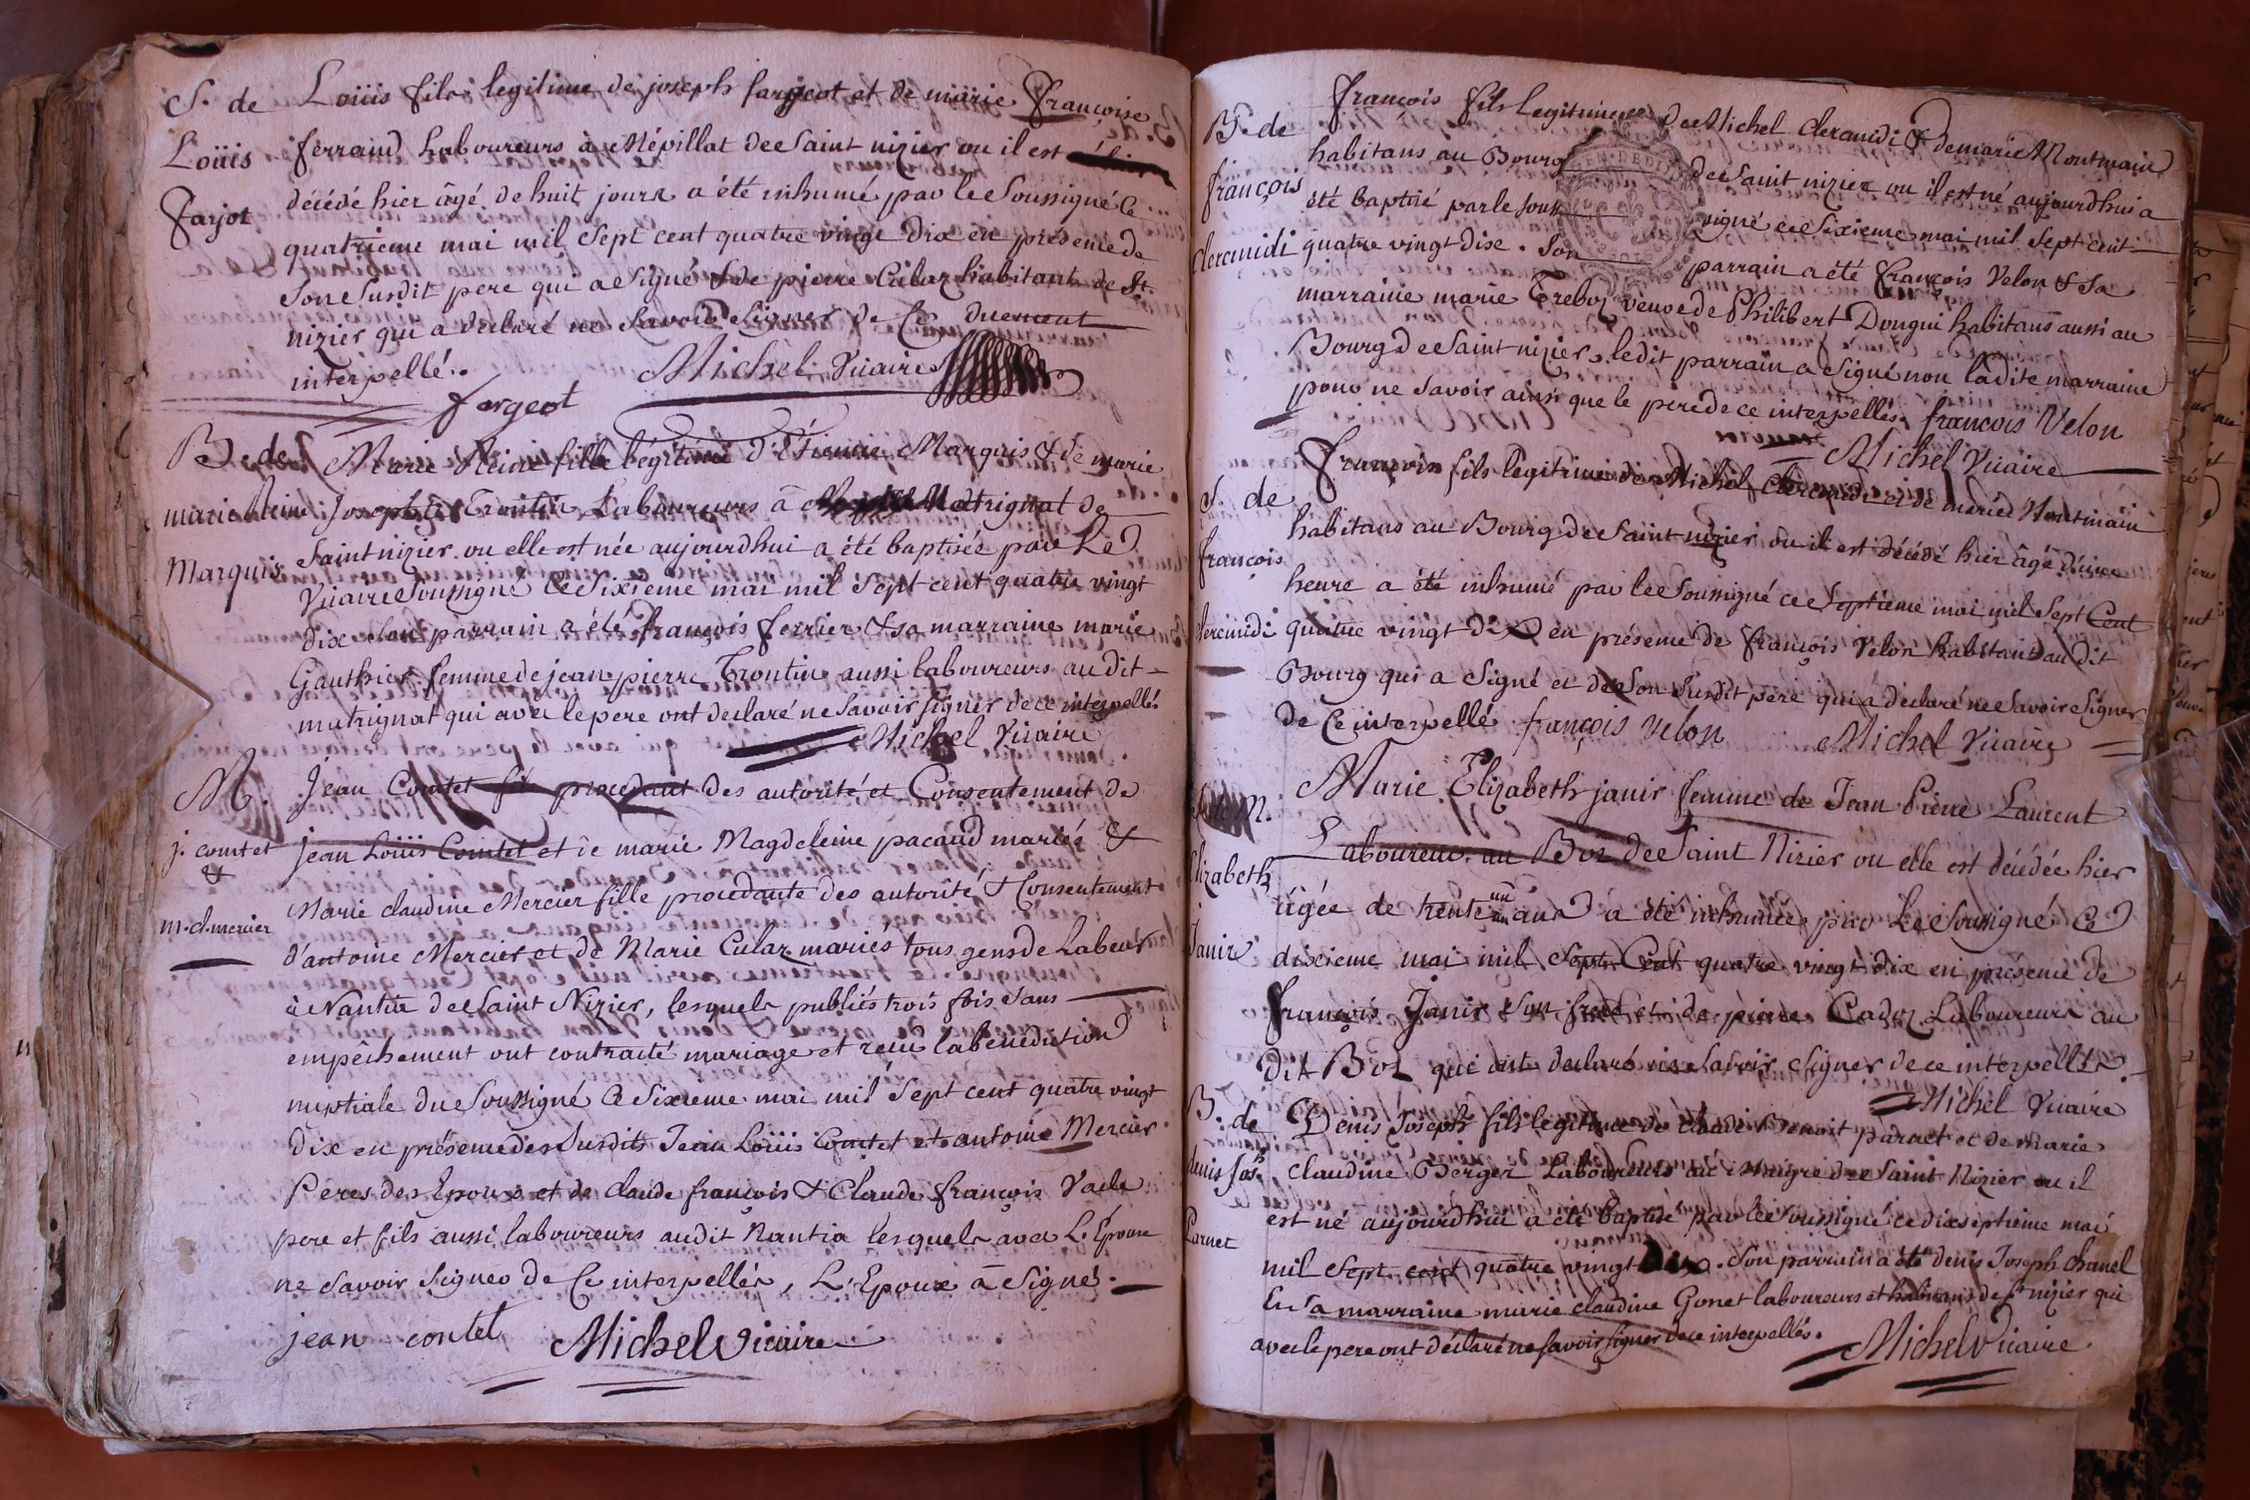 S. de
Loüis
Farjot
Loüis fils legitime de joseph fargeot et de marie françoise
ferraud Laboureurs à Mépillat de Saint nizier ou il est
décédé hier âgé de huit jours a été inhumé par le Soussigné ce
quatrieme mai mil Sept cent quatre vingt Dix en présence de
Son Susdit pere qui a Signé & de pierre Culaz habitant de St.
nizier qui a declaré ne Savoir Signer de Ce duement
interpellé.
fargeot Michel Vicaire
B. de
marie Reine
Marquis
Marie Reine fille légitime d'Étienne Marquis & de marie
Josephte Trontin Laboureurs à Matrignat de
Saint nizier ou elle est née aujourdhui a été baptisée par Le
Vicaire Soussigné Ce Sixieme mai mil Sept cent quatre vingt
dix Son parrain a été françois ferrier & sa marraine marie
Gauthier femme de jean pierre Trontin aussi laboureurs au dit
matrignat qui avec le pere ont declaré ne Savoir signer de ce interpellés
Michel Vicaire
M.
j. comtet
&
m. cl. mercier
Jean Comtet procedant des autorité et Consentement de
jean Loüis Comtet et de marie Magdeleine pacaud mariés &
Marie claudine Mercier fille procedante des autorité & Consentement
d'antoine Mercier et de Marie Culaz mariés tous gens de Labeur
à Nantia de Saint Nizier, lesquels publiés trois fois Sans
empêchement ont contracté mariage et reçu la bénédiction
nuptiale du Soussigné Ce Sixieme mai mil Sept cent quatre vingt
Dix en présence des Susdits Jean Loüis Comtet et antoine Mercier
Peres des Epoux et de claude françois & Claude françois
pere et fils aussi laboureurs audit Nantia lesquels avec L'Epouse
ne Savoir Signer de Ce interpellés, L'Epoux à Signé.
jean contet Michel Vicaire
B. de
françois
Clercmidi
françois fils Legitime de Michel Clercmidi & de marie Montmain
habitans au Bourg de Saint nizier ou il est né aujourdhui a
été baptisé par le Sous signé ce Sixieme mai mil Sept cent
quatre vingt dix. Son parrain a été françois Velon & Sa
marraine marie Treboz veuve de Philibert Donguï habitans aussi au
Bourg de Saint nizier, ledit parrain a Signé non ladite marraine
pour ne Savoir ainsi que le pere de ce interpellés. francois Velon
Michel Vicaire
S. de
françois
Clercmidi
François fils légitime de Michel Clercmidi et de marie Montmain
habitans au Bourg de Saint nizier ou il est décédé hier âgé d'une
heure a été inhumé par le Soussigné ce Septieme mai mil Sept Cent
quatre vingt dix en présence de françois Velon habitant au dit
Bourg qui a Signé et de Son Susdit pere qui a declaré ne Savoir Signer
de Ce interpellé françois Velon Michel Vicaire
M.
Elizabeth
Janir
Marie Elizabeth janir femme de Jean Pierre Laurent
Laboureur au Boz de Saint Nizier ou elle est décédée hier
âgée de trente un ans a été inhumée par Le Soussigné Ce
dixieme mai mil Sept Cent quatre vingt dix en présence de
françois Janir Son frere et de pierre Cadoz Laboureurs au
dit Boz qui ont declaré ne Savoir Signer de ce interpellés
Michel Vicaire
B. de
denis Josh
Parnet
Denis Joseph fils legitime de claude Benoit parnet et de marie
claudine Berger Laboureurs au Maigre de Saint Nizier ou il
est né aujourdhui a été baptisé par le Soussigné ce dixseptieme mai
mil Sept cent quatre vingt Dix. Son parrain a été denis Joseph chanel
Et Sa marraine marie claudine Gonet laboureurs et habitans de St nizier qui
avec le pere ont déclaré ne savoir signer de ce interpellés.
Michel Vicaire